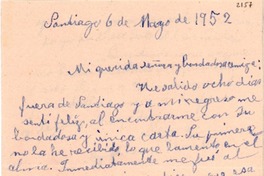 2157
Santiago 6 de Mayo de 1952
Mi querida señora y bondadosa amiga:
He salido ocho días
fuera de Santiago y a mi regreso me
sentí feliz, al encontrarme con su
bondadosa y única carta. La primera
no la he recibido lo que lamento en el
alma. Inmediatamente me fuí al
esa